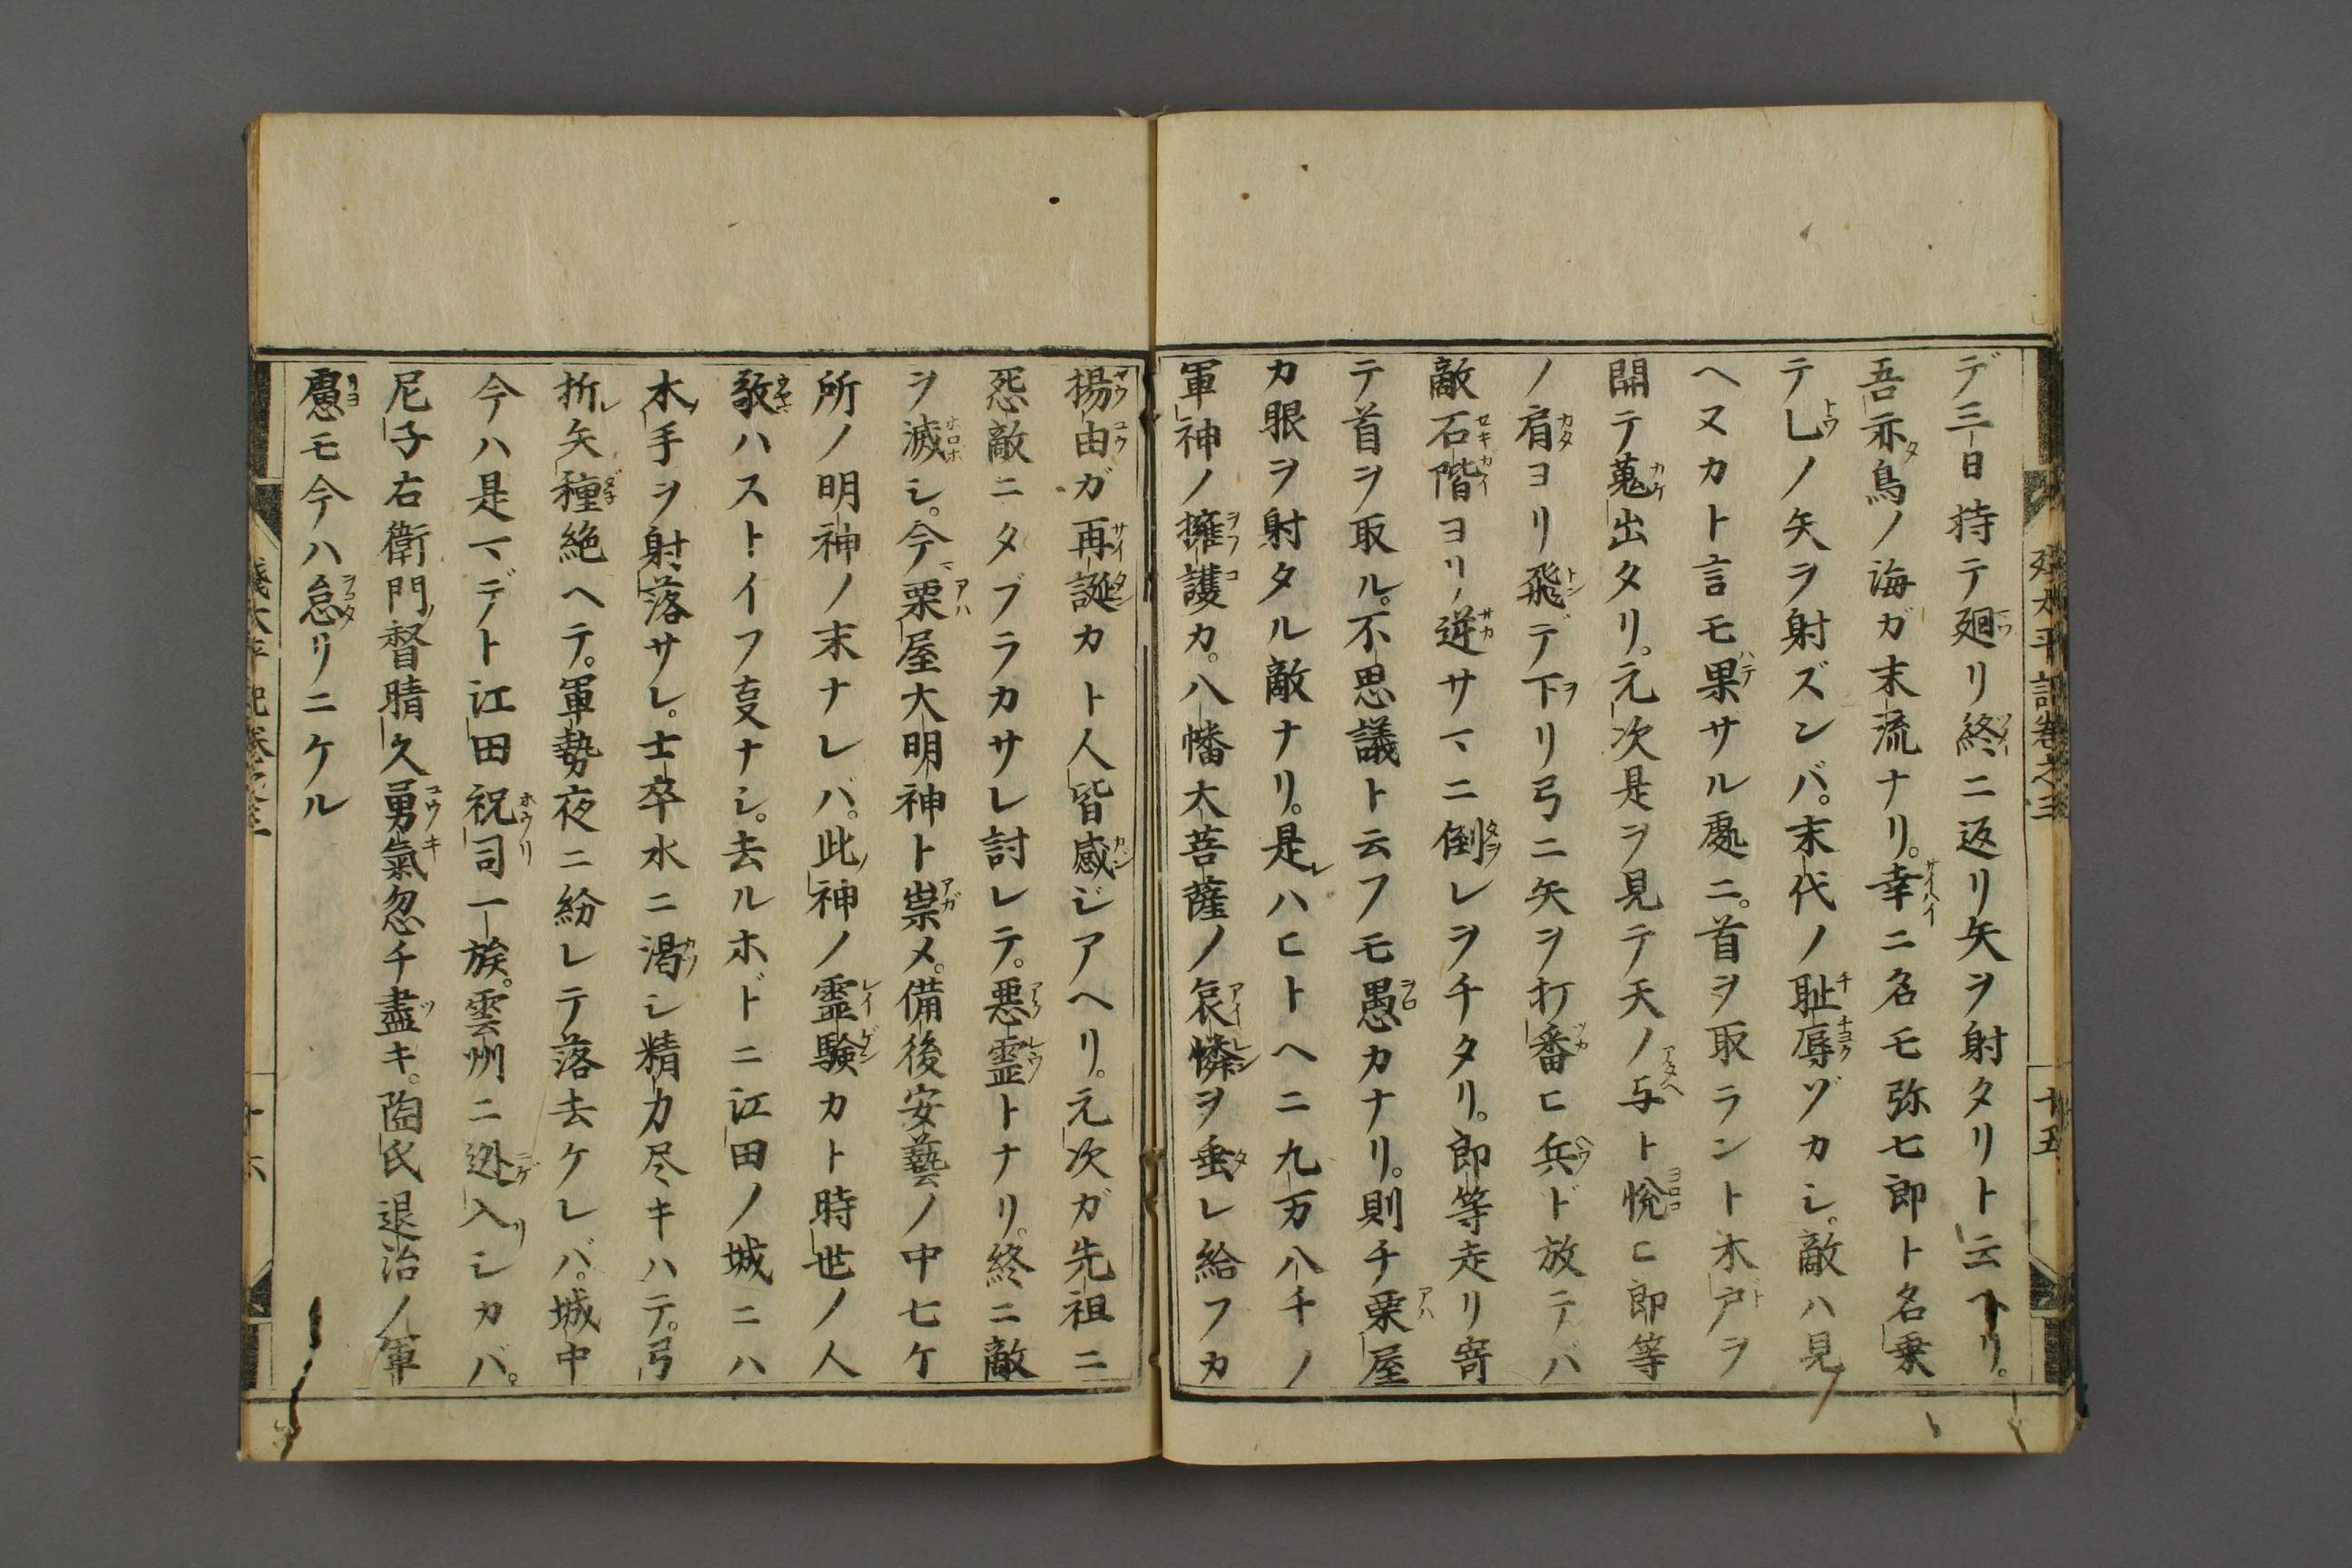 デ三日持テ廻リ終ニ返リ矢ヲ射タリト云ヘリ。
吾亦鳥ノ海ガ末流ナリ。幸ニ名モ弥七郎ト名乗
テ乚ノ矢ヲ射ズンバ。末代ノ耻辱ヅカシ。敵ハ見
ヘヌカト言モ果サル處ニ。首ヲ取ラント木戸ヲ
開テ蒐出タリ。元次是ヲ見テ天ノ与ト悅ヒ郎等
ノ肩ヨリ飛デ下リ弓ニ矢ヲ打番ヒ兵ド放テバ
敵石階ヨリ逆サマニ倒レヲチタリ。郎等走リ寄
テ首ヲ取ル。不思議ト云フモ愚カナリ。則チ粟屋
カ眼ヲ射タル敵ナリ。是ハヒトヘニ九万八千ノ
軍神ノ擁護カ。八幡大菩薩ノ哀憐ヲ垂レ給フカ
残太平記巻之三
十五
揚由ガ再誕カト人皆感ジアヘリ。元次ガ先祖ニ
怨敵ニタブラカサレ討レテ。悪霊トナリ。終ニ敵
ヲ滅シ。今粟屋大明神ト祟メ。備後安藝ノ中七ケ
所ノ明神ノ末ナレバ。此神ノ霊験カト時世ノ人
敬ハストイフ㕝ナシ。去ルホドニ江田ノ城ニハ
水手ヲ射落サレ。士卒水ニ渇シ精力尽キハテ。弓
折矢種絶ヘテ。軍勢夜ニ紛レテ落去ケレバ。城中
今ハ是マデト江田祝司一族。雲州ニ迯入シカバ。
尼子右衛門督晴久勇氣忽チ盡キ。陶氏退治ノ軍
慮モ今ハ怠リニケル
残太平記巻之三
十六